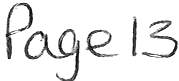 Page 13